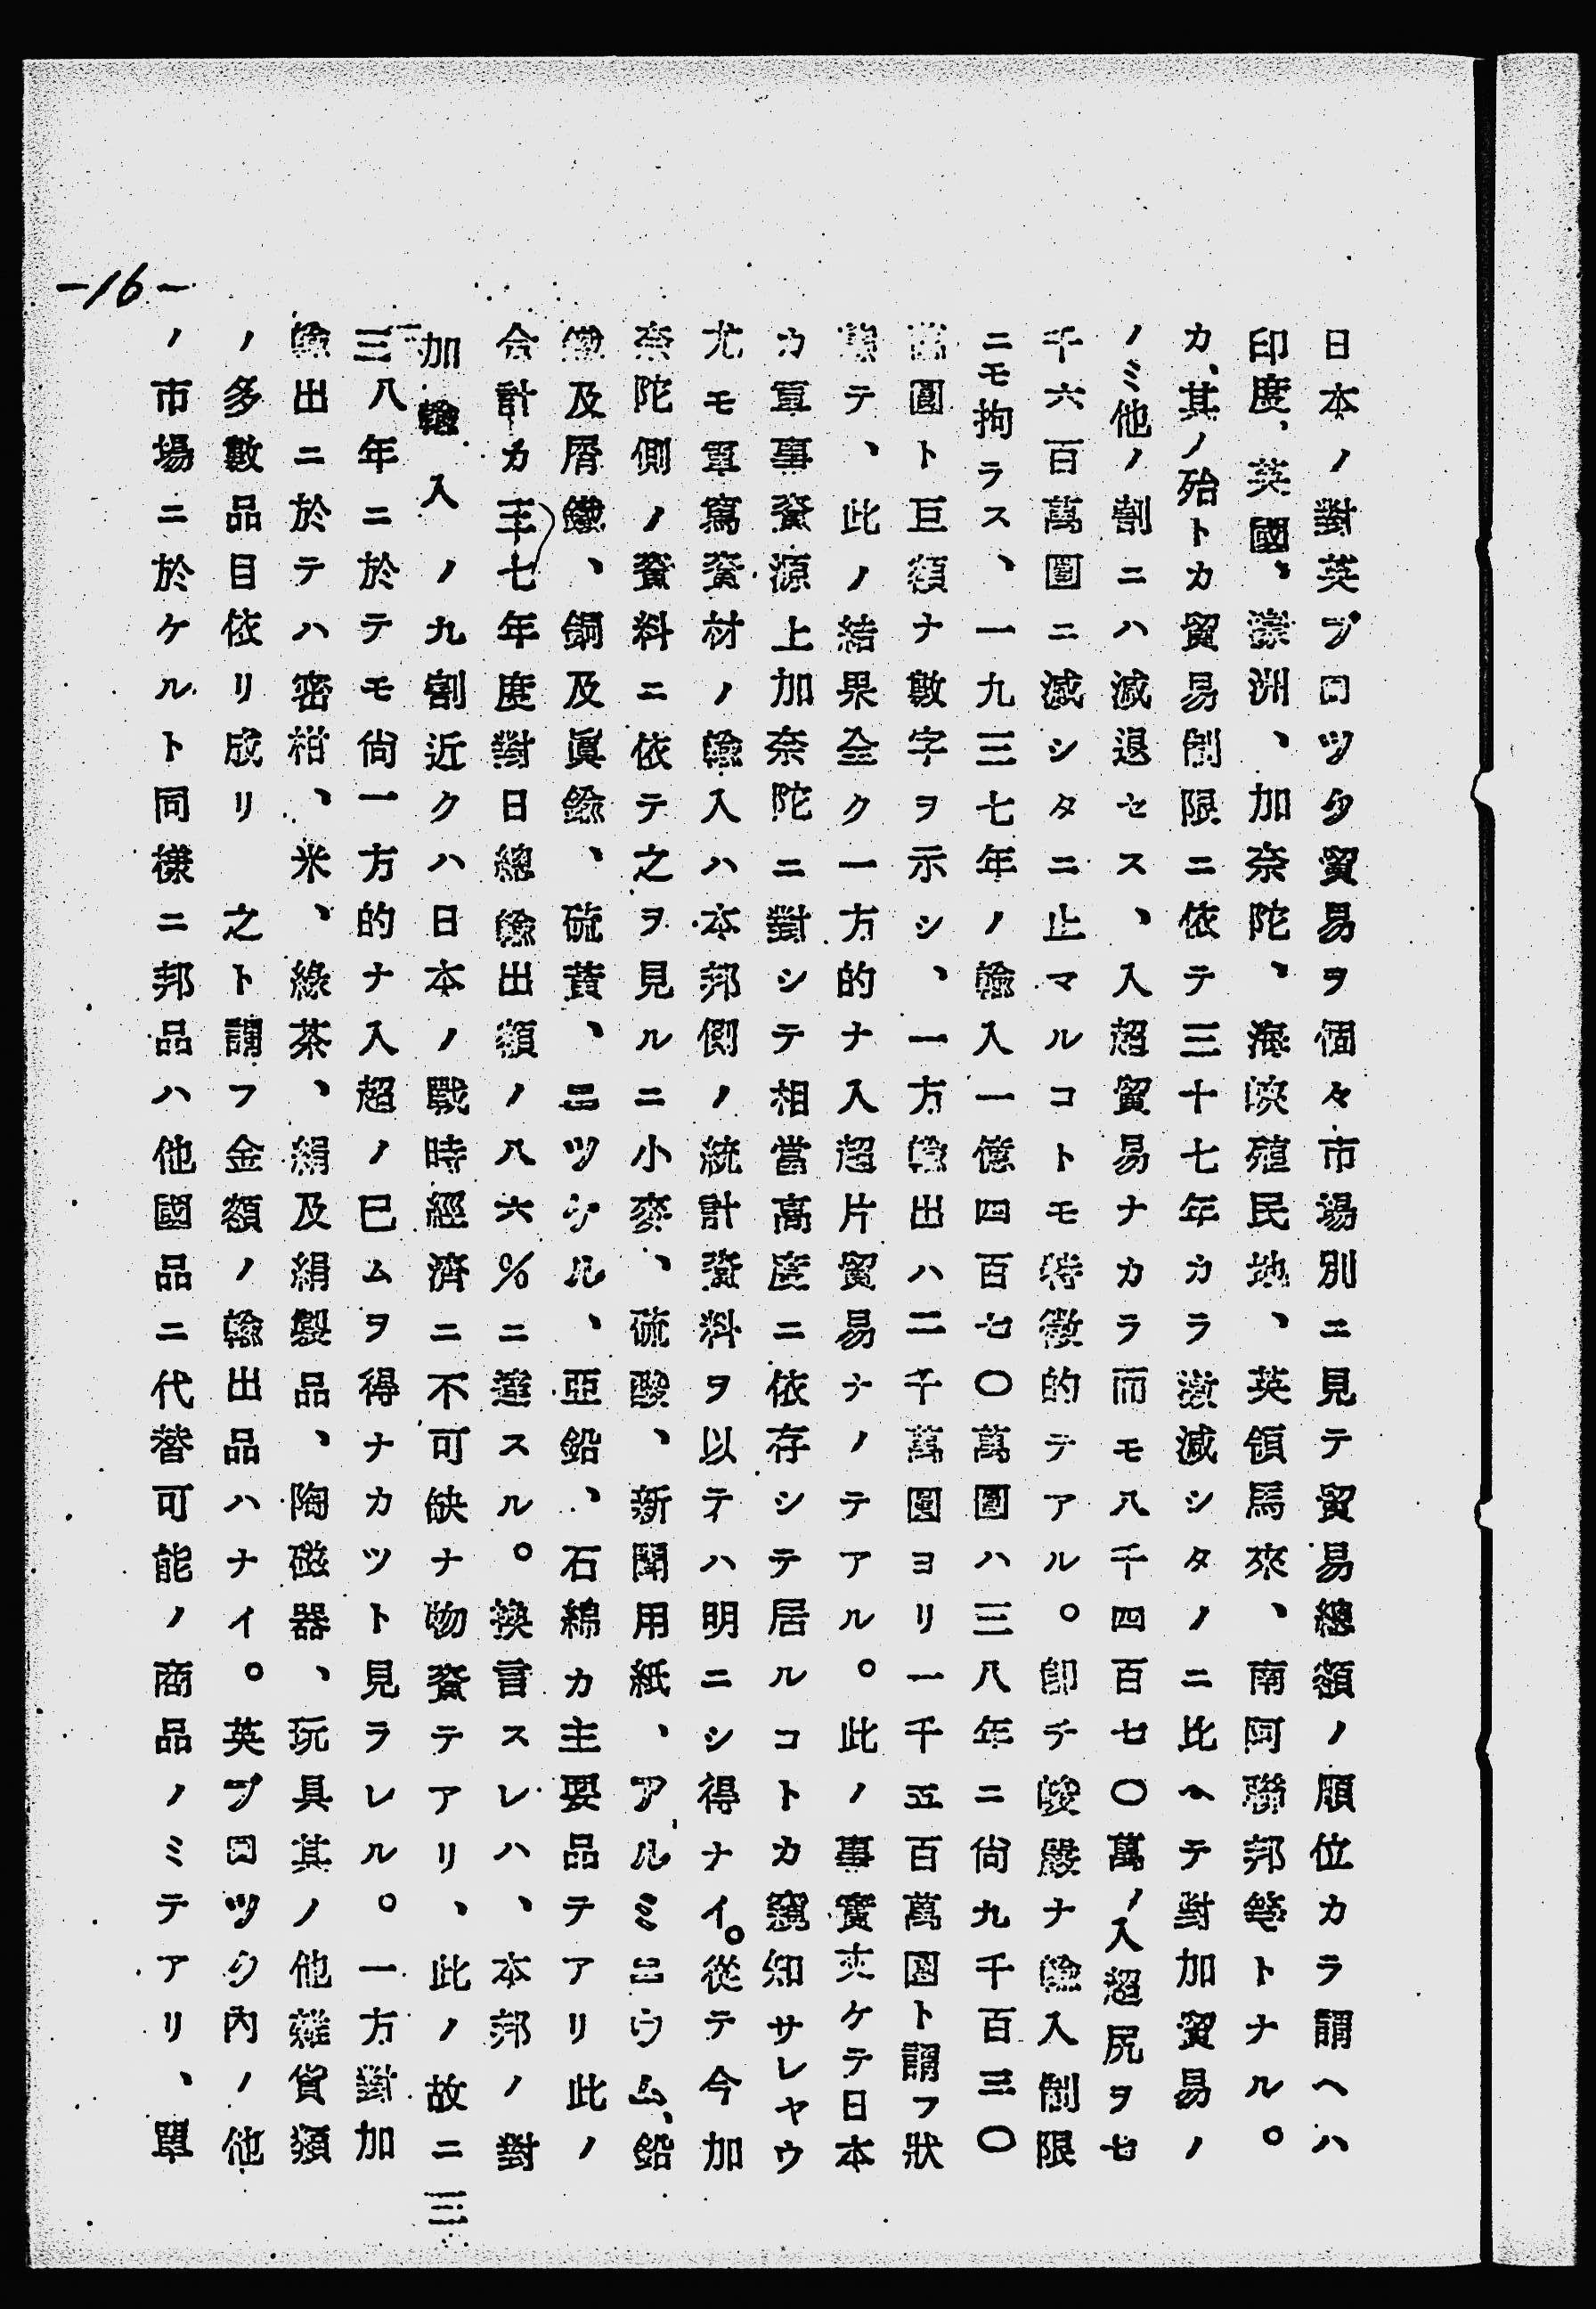 日本ノ對英ブロツク貿易ヲ個々市場別ニ見テ貿易總額ノ順位カラ謂ヘハ
印度、英國、濠洲、加奈陀、海峽殖民地、英領馬來、南阿聯邦等トナル。
カ、其ノ殆トカ貿易制限ニ依テ三十七年カラ激減シタノニ比ヘテ對加貿易ノ
ノミ他ノ割ニハ減退セス、入超貿易ナカラ而モ八千四百七〇萬ノ入超尻ヲ七
千六百萬圓ニ減シタニ止マルコトモ特徴的テアル。卽チ峻嚴ナ輸入制限
ニモ拘ラス、一九三七年ノ輸入一億四百七〇萬圓ハ三八年ニ尙九千百三〇
萬圓ト巨額ナ數字ヲ示シ、一方輸出ハ二千萬圓ヨリ一千五百萬圓ト謂フ狀
態テ、此ノ結果全ク一方的ナ入超片貿易ナノテアル。此ノ事實丈ケテ日本
カ軍事資源上加奈陀ニ對シテ相當高度ニ依存シテ居ルコトカ窺知サレヤウ
尤モ軍寫資材ノ輸入ハ本邦側ノ統計資料ヲ以テハ明ニシ得ナイ。從テ今加
奈陀側ノ資料ニ依テ之ヲ見ルニ小麥、硫酸、新聞用紙、アルミニウム、鉛
鐵及屑鐵、銅及眞鍮、硫黄、ニツケル、亞鉛、石綿カ主要品テアリ此ノ
合計カ三七年度對日總輸出額ノ八六%ニ達スル。換言スレハ、本邦ノ對
加輸入ノ九割近クハ日本ノ戰時經濟ニ不可缺ナ物資テアリ、此ノ故ニ三
三八年ニ於テモ尙一方的ナ入超ノ巳ムヲ得ナカツト見ラレル。一方對加
輸出ニ於テハ密柑、米、綠茶、絹及絹製品、陶磁器、玩具其ノ他雜貨類
ノ多數品目依リ成リ 之ト謂フ金額ノ輸出品ハナイ。英ブロツク內ノ他
ノ市場ニ於ケルト同樣ニ邦品ハ他國品ニ代替可能ノ商品ノミテアリ、單
-16-